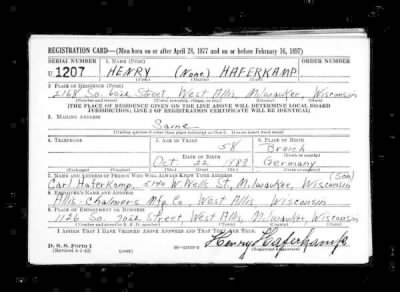 REGISTRATION CARD—(Men born on or after April 28, 1877 and on or before February 16, 1897)
SERIAL NUMBER 1. NAME (Print) ORDER NUMBER
U 1207 HENRY (None) HAFERKAMP
(First) (Middle) (Last)
2. PLACE OF RESIDENCE (Print)
2168 So. 60th Street, West Allis, Milwaukee, Wisconsin
(Number and street) (Town, township, village, or city) (County) (State)
[THE PLACE OF RESIDENCE GIVEN ON THE LINE ABOVE WILL DETERMINE LOCAL BOARD
JURISDICTION; LINE 2 OF REGISTRATION CERTIFICATE WILL BE IDENTICAL]
3. MAILING ADDRESS
Same
[Mailing address if other than place indicated on line 2. If same insert word same]
4. TELEPHONE 5. AGE IN YEARS 6. PLACE OF BIRTH
58 Broich
DATE OF BIRTH (Town or county)
Oct 22 1883 Germany
(Mo.) (Day) (Yr.) (State or country)
7. NAME AND ADDRESS OF PERSON WHO WILL ALWAYS KNOW YOUR ADDRESS (son)
Carl Haferkamp, 5140 W Wells St, Milwaukee, Wisconsin
8. EMPLOYER'S NAME AND ADDRESS
Allis-Chalmers Mfg Co, West Allis, Wisconsin
9. PLACE OF EMPLOYMENT OR BUSINESS
1126 So. 70th Street, West Allis, Milwaukee, Wisconsin
(Number and street or R. F. D. number) (Town) (County) (State)
I AFFIRM THAT I HAVE VERIFIED ABOVE ANSWERS AND THAT THEY ARE TRUE.
D. S. S. Form 1
(Revised 4-1-42) (over) Henry Haferkamp
(Registrant's signature)